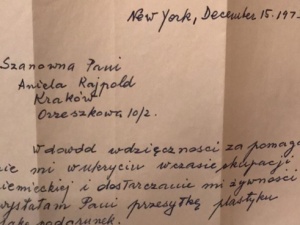 New York, December 15. 197
Szanowna Pani
Aniela Rajpold
Kraków
Orzeszkowa 10/2.
W dowód wdzięczności za pomaga
nie mi w ukryciu w czasie okupacji
niemieckiej i dostarczanie mi żywności
wysłałam Pani przesyłkę plastyku
jako podarunek.